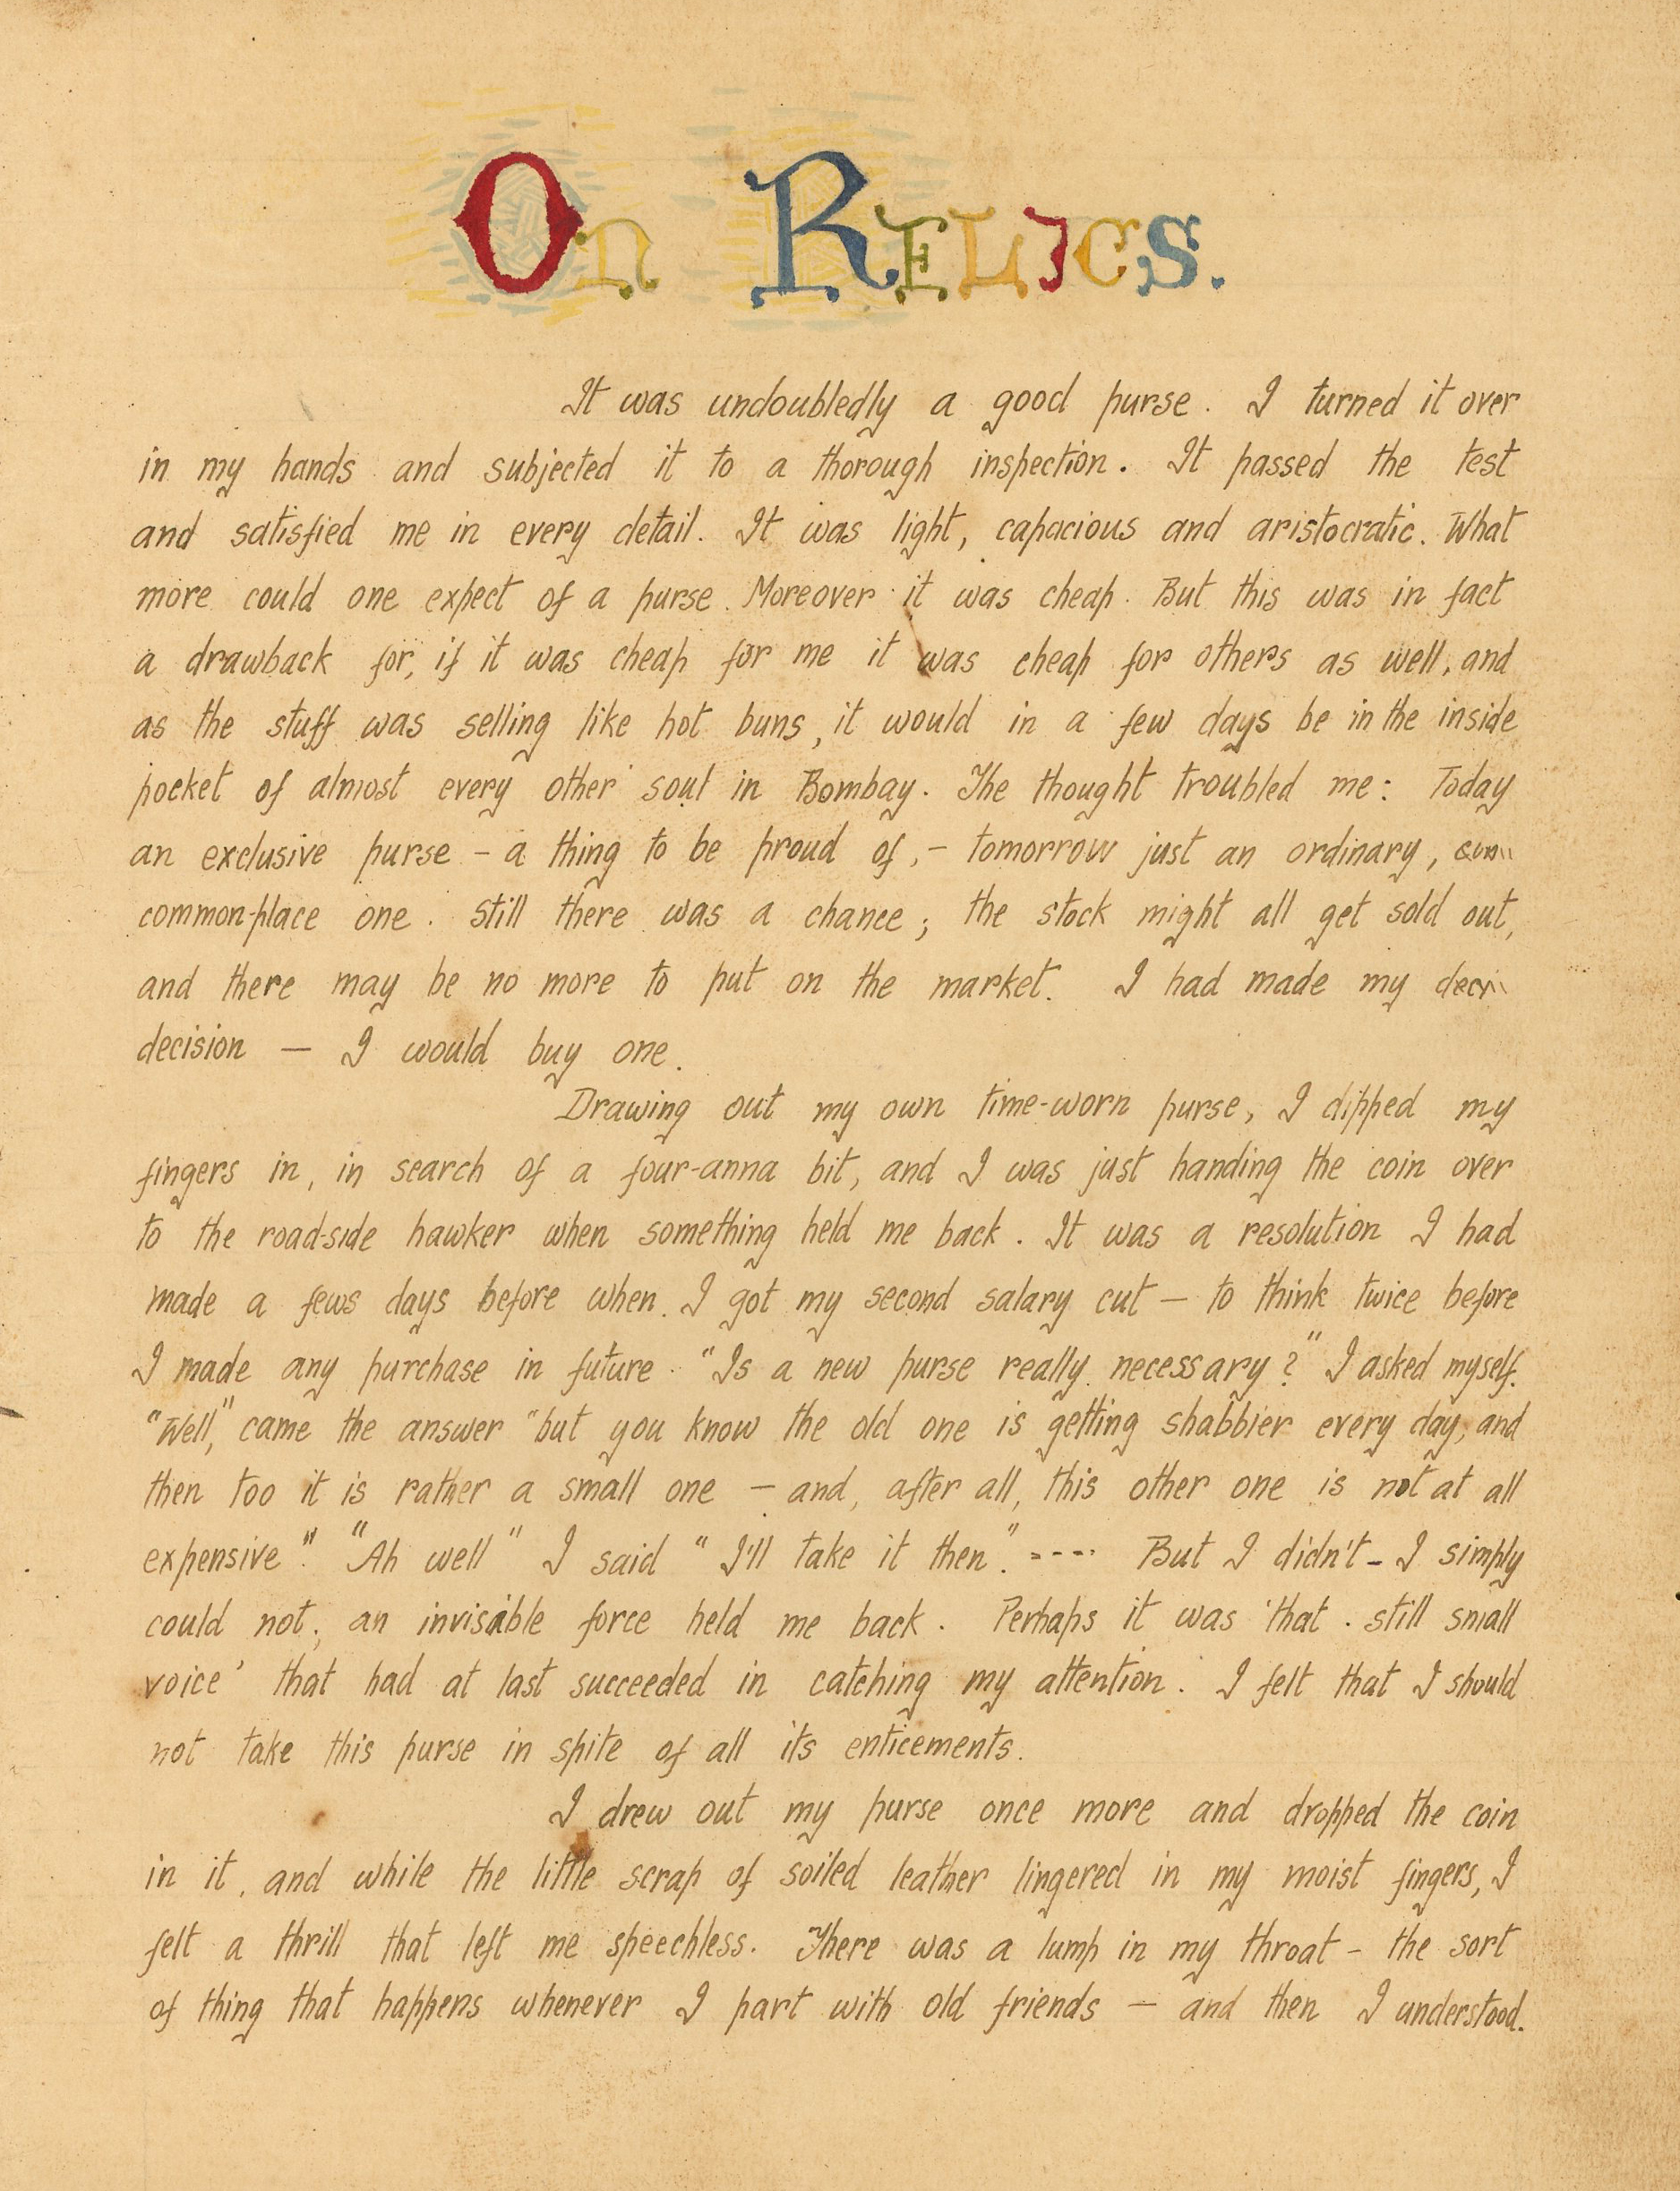 On Relics.
It was undoubledly a good purse. I turned it over
in my hands and subjected it to a thorough inspection. It passed the test
and satisfied me in every detail. It was light, capacious and aristocratic. What
more could one expect of a purse. Moreover it was cheap. But this was in fact
a drawback for, if it was cheap for me it was cheap for others as well, and
as the stuff was selling like hot buns, it would in a few days be in the inside
pocket of almost every other soul in Bombay. The thought troubled me: Today
an exclusive purse - a thing to be proud of, - tomorrow just an ordinary,
common-place one. Still there was a chance; the stock might all get sold out,
and there may be no more to put on the market. I had made my deci
decision — I would buy one.
Drawing out my own time-worn purse, I dipped my
fingers in, in search of a four-anna bit, and I was just handing the coin over
to the road-side hawker when something held me back. It was a resolution I had
made a fews days before when I got my second salary cut — to think twice before
I made any purchase in future. "Is a new purse really necessary?" I asked myself.
"Well," came the answer "but you know the old one is getting shabbier every day, and
then too it is rather a small one — and, after all, this other one is not at all
expensive". "Ah well" I said "I'll take it then." ---- But I didn't - I simply
could not; an invisible force held me back. Perhaps it was 'that still small
voice' that had at last succeeded in catching my attention. I felt that I should
not take this purse in spite of all its enticements.
I drew out my purse once more and dropped the coin
in it, and while the little scrap of soiled leather lingered in my moist fingers, I
felt a thrill that left me speechless. There was a lump in my throat - the sort
of thing that happens whenever I part with old friends — and then I understood.